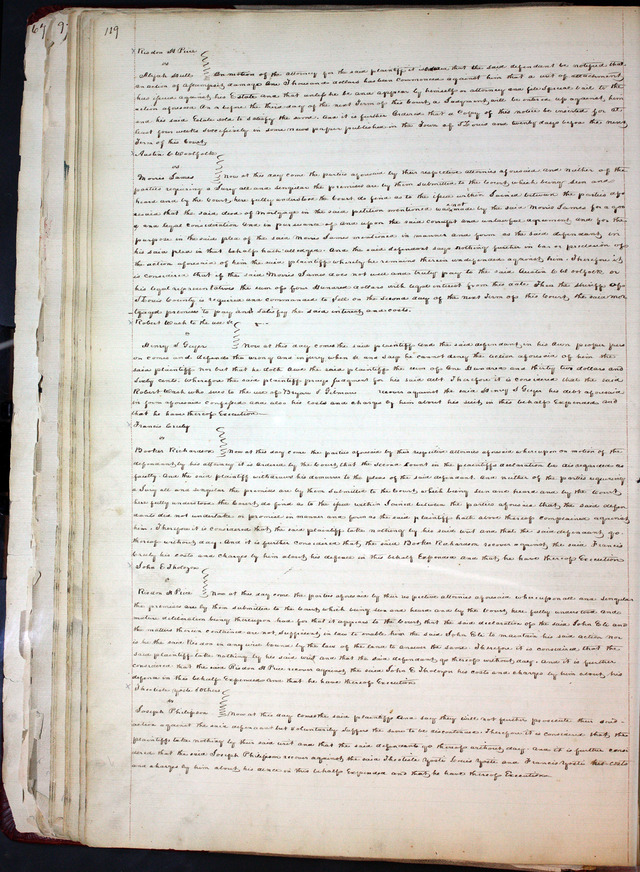 67 9 119
Risdon H Price
vs
Elijah Hull On motion of the attorney for the said plaintiff it is ordered that the said defendant be notified that
an action of assumpsit, damages One Thousand dollars has been commenced against him that a writ of attachment
has issued against his Estate and that unless he be and appear by himself or attorney and file Special bail to the
action aforesaid on or before the third day of the next Term of this Court, a Judgment, will be entered up against him
and his said Estate sold to satisfy the same. And it is further Ordered that a Copy of this notice be inserted for at
least four weeks Successively in some news paper published in the Town of St Louis and twenty days before the next
Term of this Court,
Austin C Woolfolk
vs
Morris James Now at this day come the parties aforesaid by their respective attornies aforesaid And neither of the
parties requiring a Jury all and singular the premises are by them submitted to the Court, which being seen and
heard and by the Court, here fully understood the Court do find as to the issue within Joined between the parties afo
resaid that the said deed of Mortgage in the said petition mentioned was not made by the said Morris James for a goo
d and legal Consideration And in pursuance of And upon the said corrupt and unlawful agreement and for the
purpose in the said plea of the said Morris James mentioned in manner and form as the said defendant, in
his said plea in that behalf hath alledged. And the said defendant says nothing further in bar or preclusion of
the action aforesaid of him the said plaintiff whereby he remains therein undefended against him. Therefore it
is considered that if the said Morris James does not well and truly pay to the said Austin C Woolfolk or
his legal representatives the sum of four Hundred dollars with legal interest from this date. Then the Sheriff of
St Louis County is required and commanded to Sell on the second day of the next Term of this Court, the said mor
tgaged premises to pay and satisfy the said interest, and costs.
Robert Wash to the use &c
vs
Henry S. Geyer Now at this day come the said plaintiff And the said defendant, in his own proper pers
on comes and defends the wrong and injury when & and Says he cannot deny the action aforesaid of him the
said plaintiff nor but that he doth Owe the said plaintiff the sum of One Hundred and thirty two dollars and
Sixty cents. Wherefore the said plaintiff prays Judgment for his said debt. Therefore it is considered that the said
Robert Wash who sues to the use of Bryan & Gilmore recover against the said Henry S Geyer his debt aforesaid
in form aforesaid confessed and also his costs and charges by him about his suit, in this behalf Expended and
that he have thereof Execution
Francis Creely
vs
Booker Richardson Now at this day come the parties aforesaid by their respective attornies aforesaid whereupon on motion of the
defendant, by his attorney it is Ordered by the Court, that the Second Count in the plaintiffs declaration be disregarded as
faulty And the said plaintiff withdraws his demurrer to the pleas of the said defendant. And neither of the parties requiring
a Jury all and singular the premises are by them Submitted to the Court, which being seen and heard and by the Court,
here fully understood the Court, do find as to the issue within Joined between the parties aforesaid that, the said defen
dant did not undertake or promise in manner and form as the said plaintiff hath above thereof complained against
him. Therefore it is considered that, the said plaintiff take nothing by his said writ and that the said defendant, go
thereof without day. And it is further considered that, the said Booker Richardson recover against, the said Francis
Creely his costs and charges by him about, his defence in this behalf Expended and that, he have thereof Execution
John E Tholozan
vs
Risdon H Price Now at this day come the parties aforesaid by their respective attornies aforesaid whereupon all and singular
the premises are by them submitted to the Court, which being seen and heard and by the Court, here fully understood and
mature deliberation being thereupon had for that it appears to the Court, that the said declaration of the said John E and
the matters therein contained are not, sufficient, in law to enable him the said John E to maintain his said action nor
is he the said Risdon in any wise bound by the law of the land to answer the same. Therefore it is considered, that the
said plaintiff take nothing by his said writ and that the said defendant, go thereof without day. And it is further
considered that the said Risdon H Price recover against, the said John E Tholozan his costs and charges by him about, his
defence in this behalf Expended And that he have thereof Execution
Theotiste Yosti & Others
vs
Joseph Philipson Now at this day comes the said plaintiffs And say they will not further prosecute their said
action against the said defendant but voluntarily suffer the same to be discontinued. Therefore it is considered that, the
plaintiffs take nothing by their said writ and that the said defendant go thereof without day. And it is further consi
dered that the said Joseph Philipson recover against, the said Theotiste Yosti Louis Yosti and Francis Yosti his costs
and charges by him about, his defence in this behalf Expended and that, he have thereof Execution